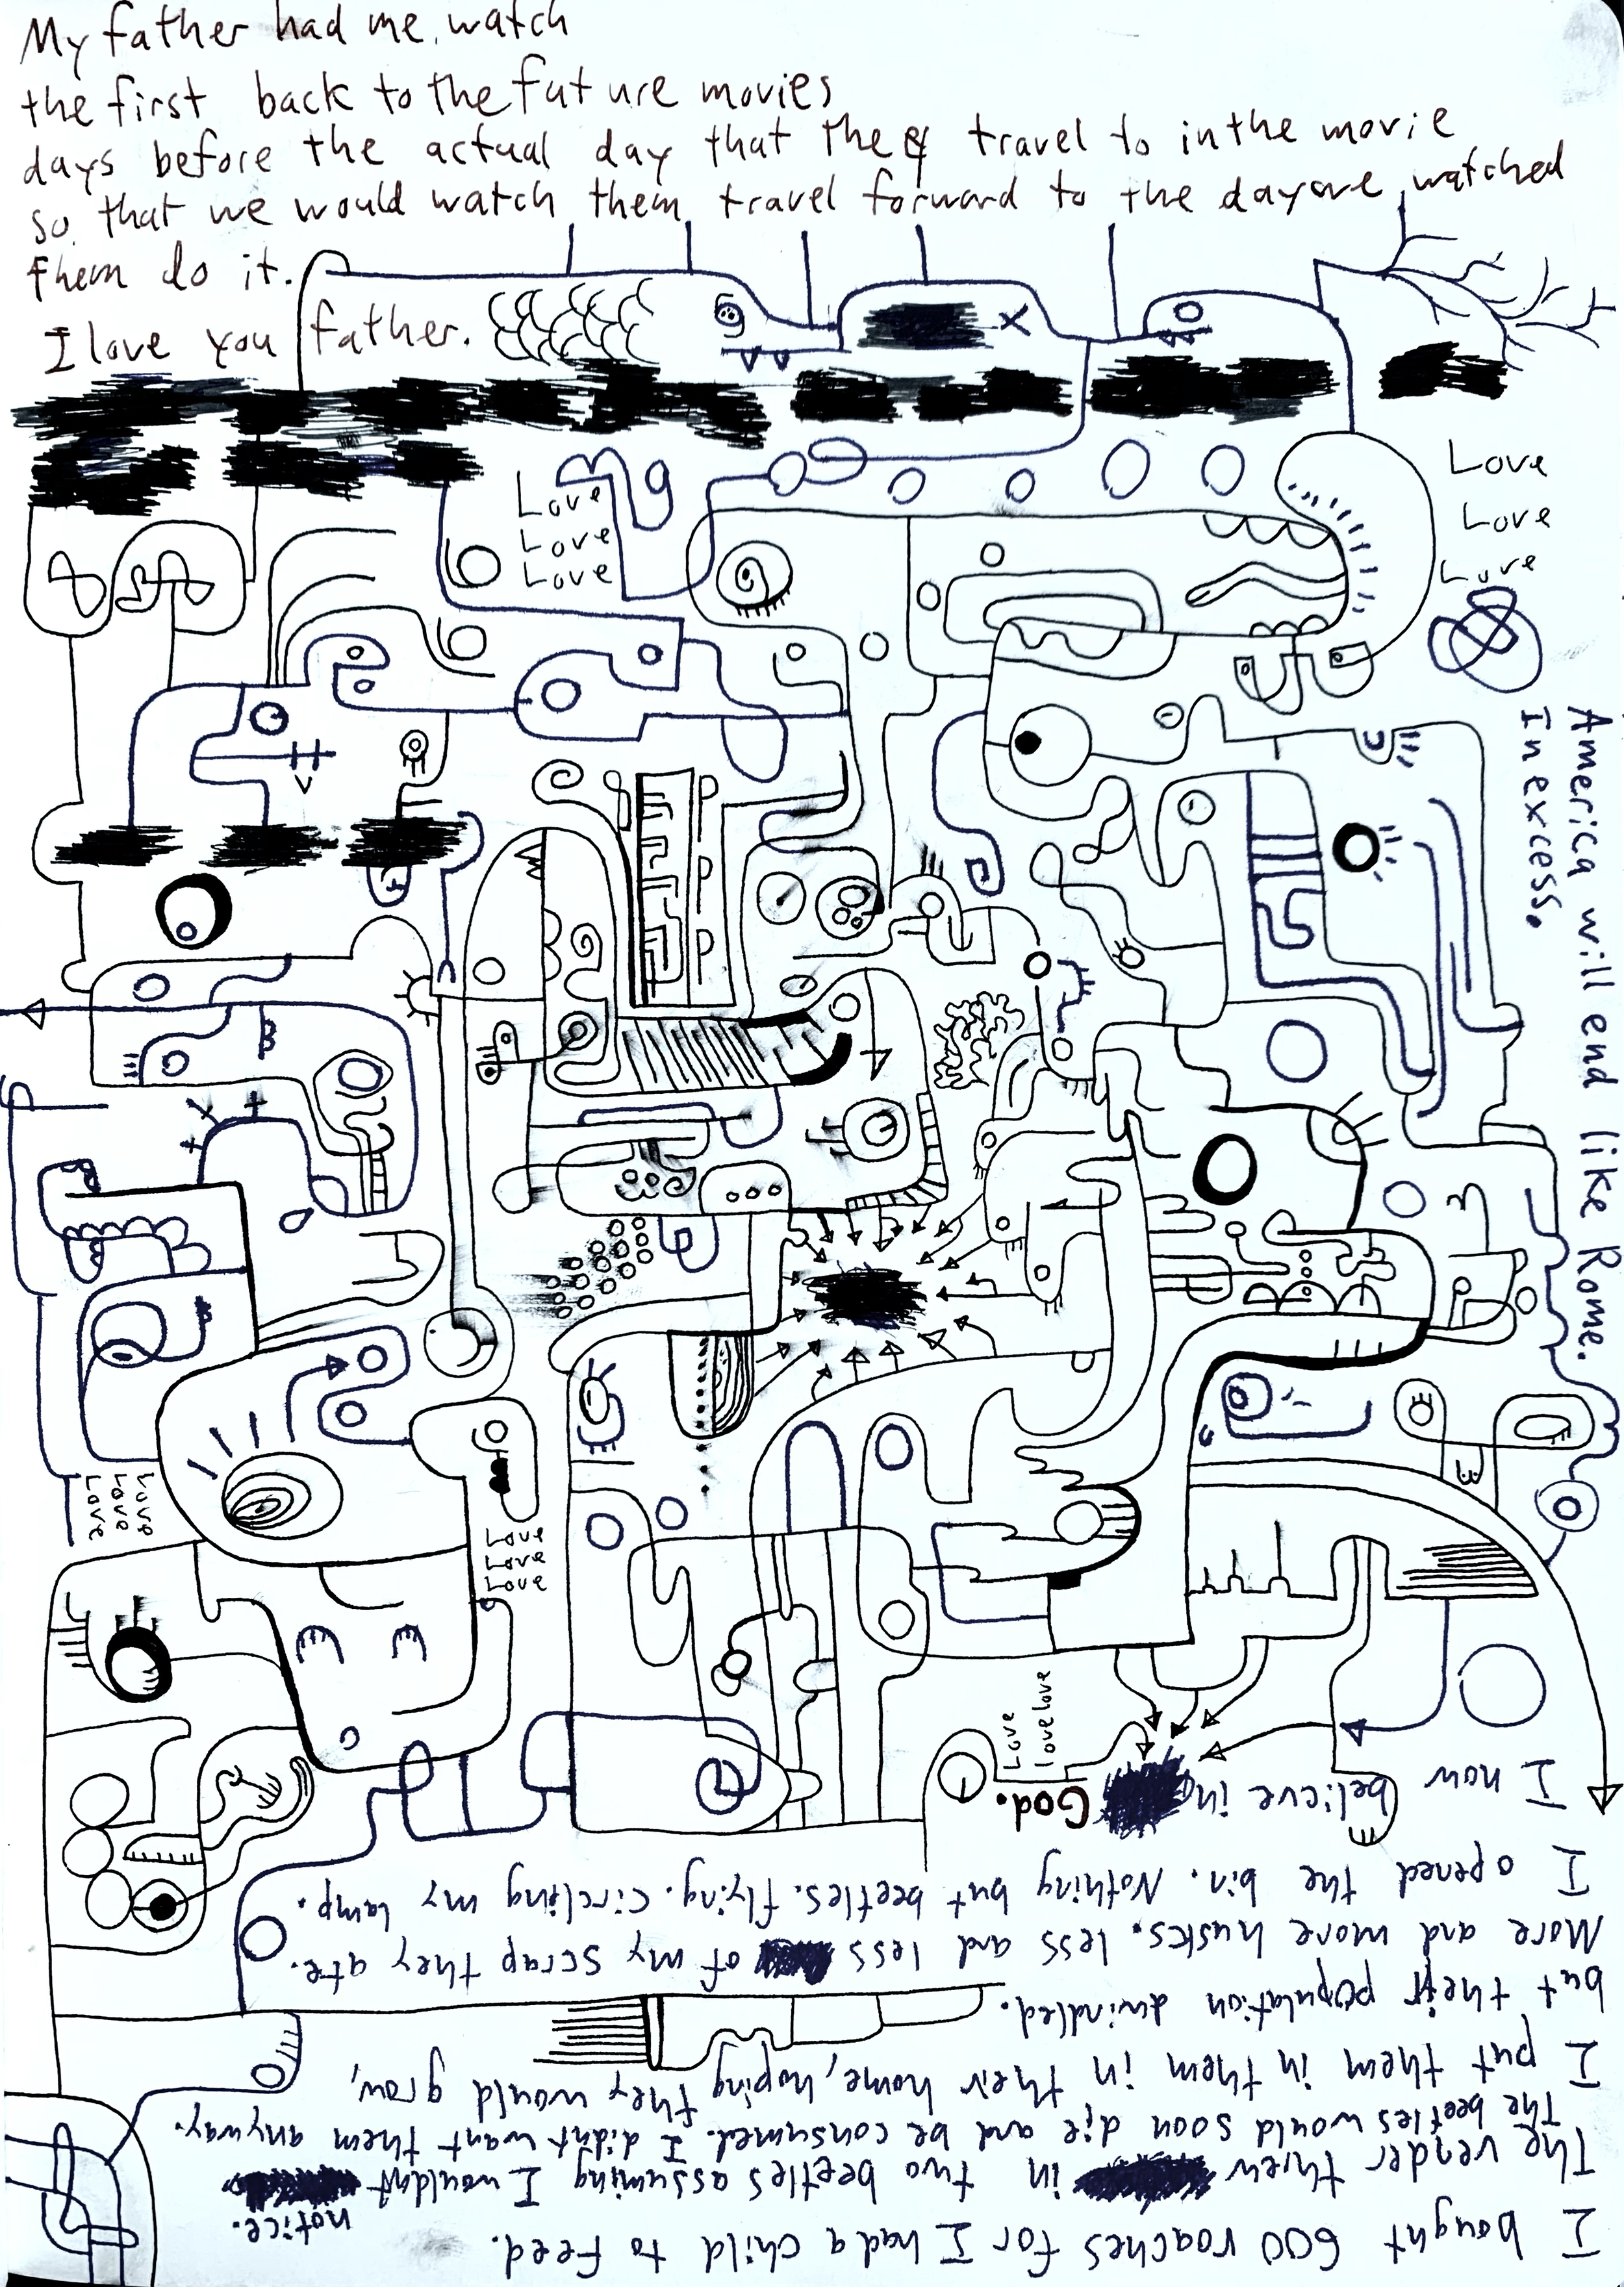 My father had me watch
the first back to the future movies
days before the actual day that they travel to in the movie
so that we would watch them travel forward to the day we watched
them do it.
I love you father.
Love
Love
Love
Love
Love
Love
America will end like Rome.
In excess.
Love
Love
Love
Love
Love
Love
Love
love love
I bought 600 roaches for I had a child to feed.
The vender threw in two beetles assuming I wouldn't
notice.
The beetles would soon die and be consumed. I didn't want them anyway.
I put them in them in their home, hoping they would grow,
but their population dwindled.
More and more husks. less and less of my scrap they ate.
I opened the bin. Nothing but beetles. flying. Circling my lamp.
I now
believe in
God.